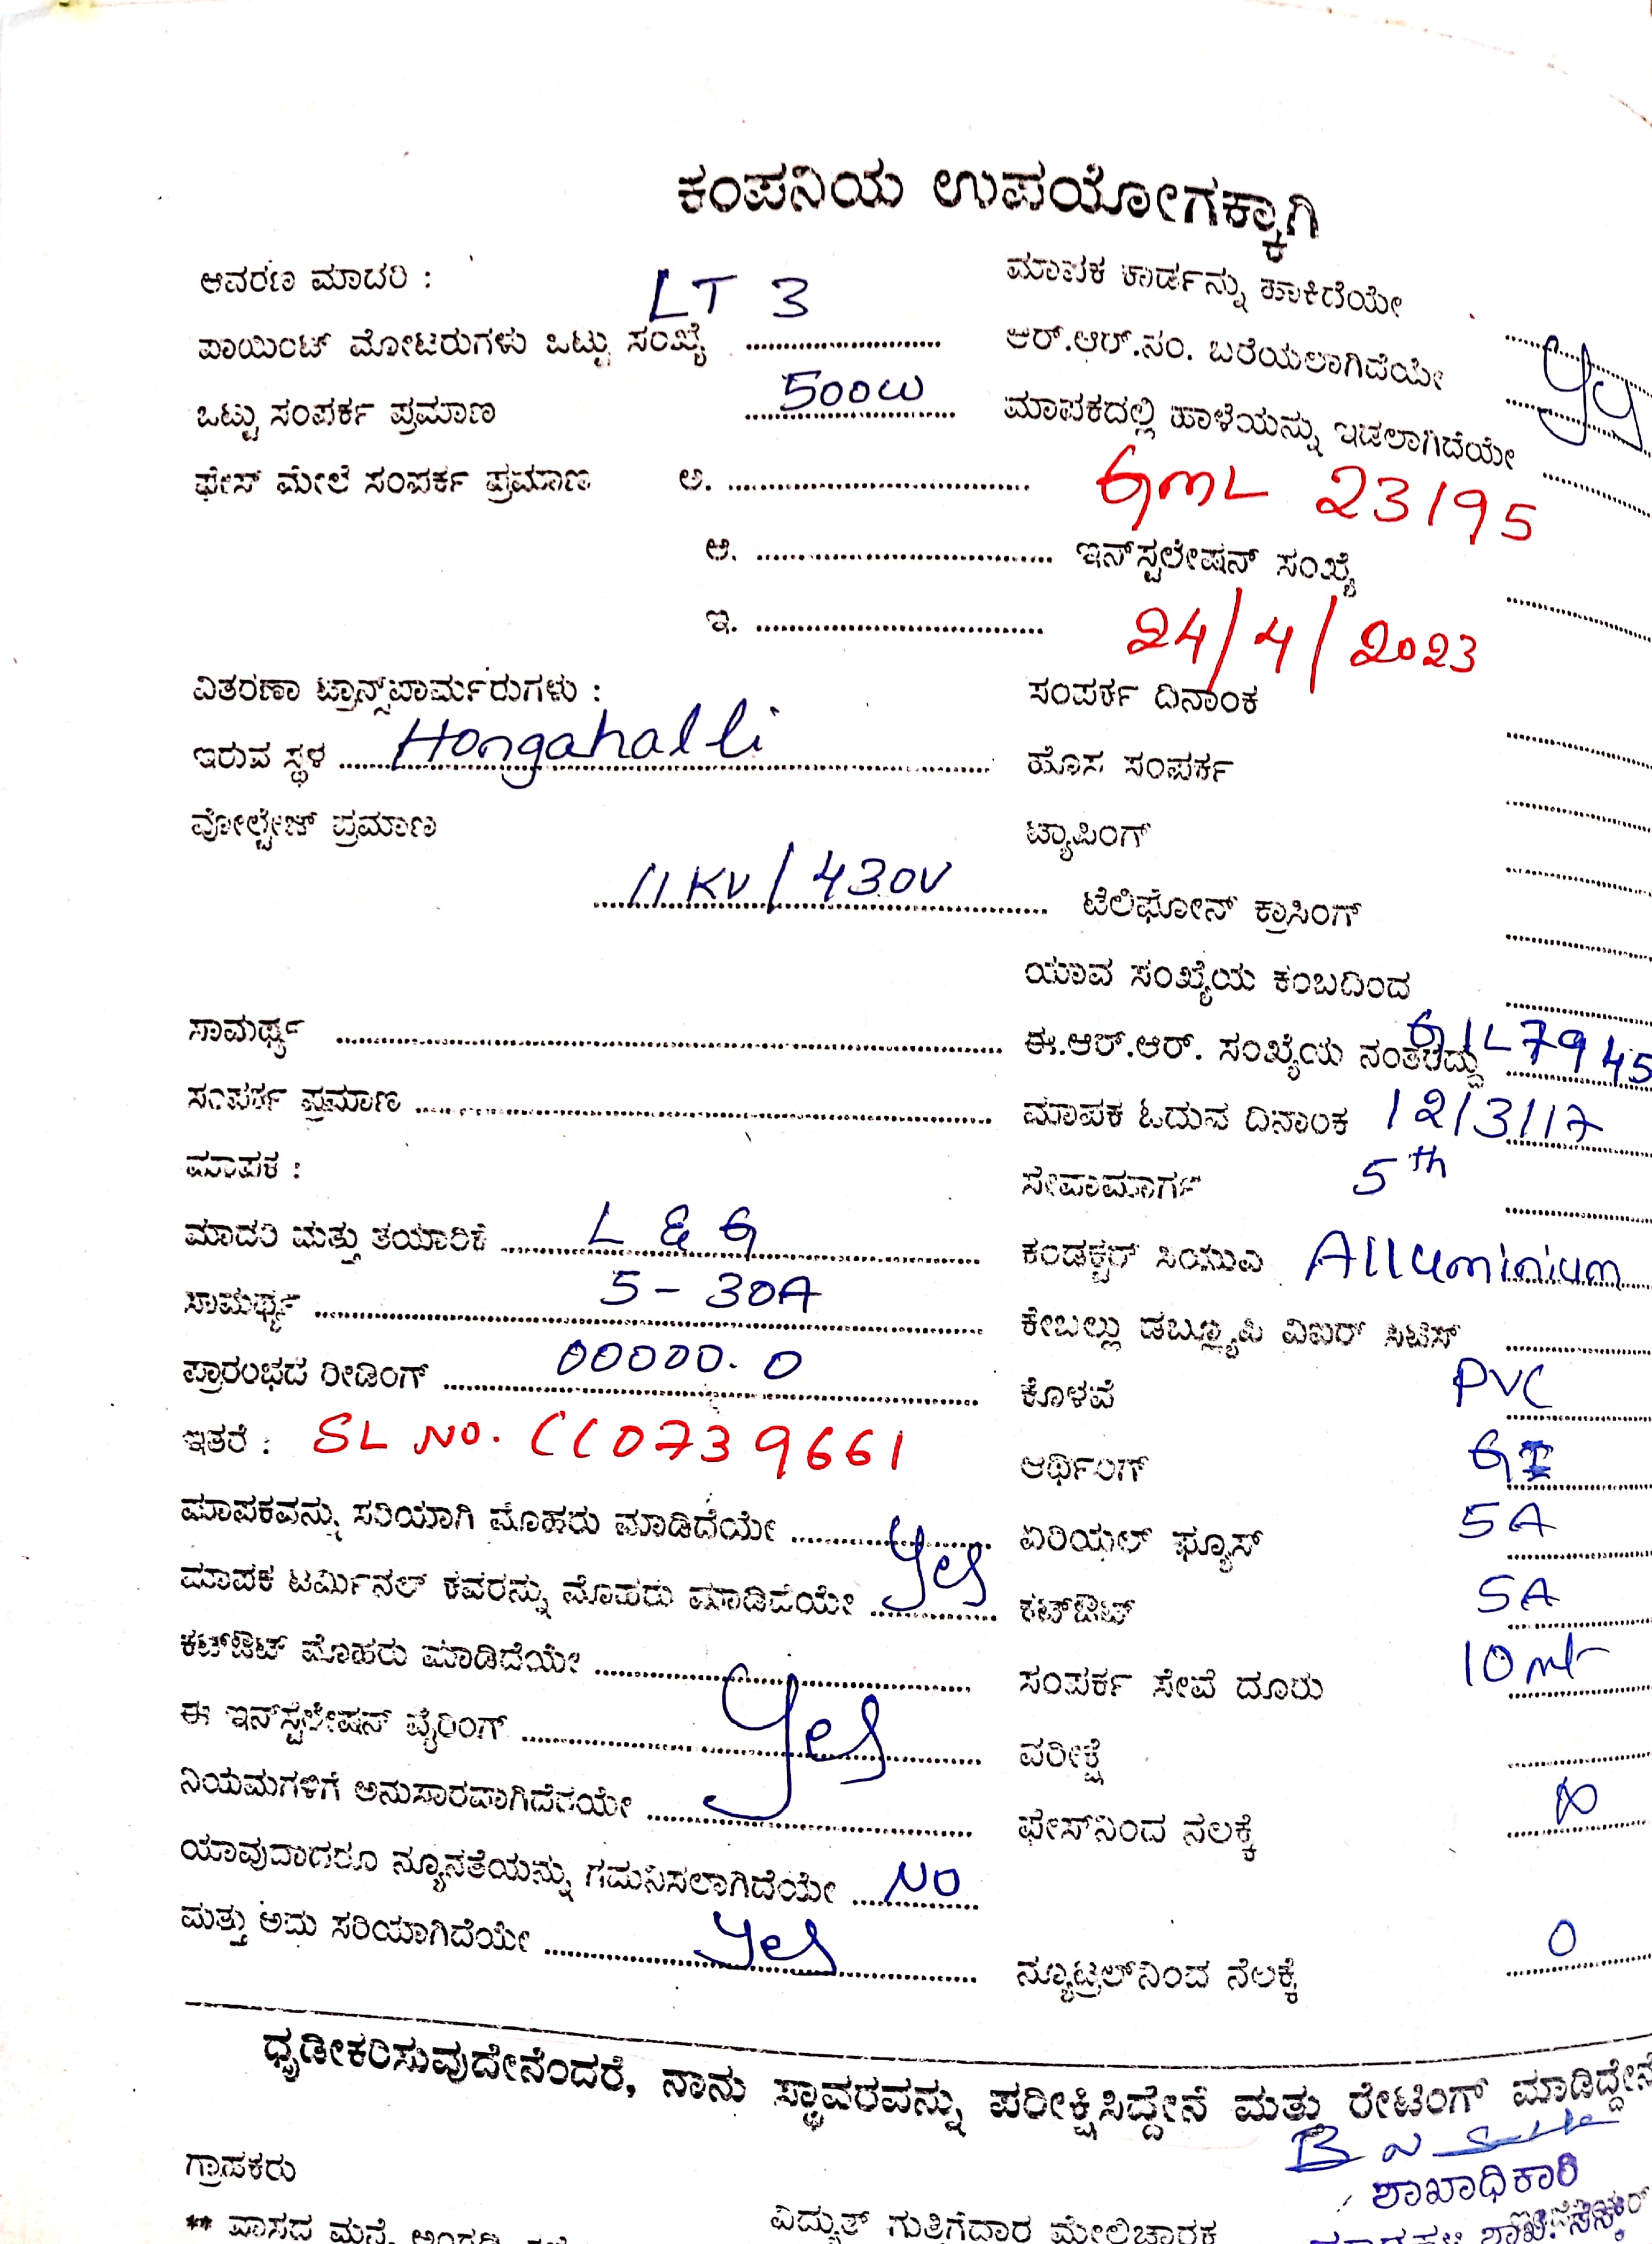 ಕಂಪನಿಯ ಉಪಯೋಗಕ್ಕಾಗಿ
ಆವರಣ ಮಾದರಿ : LT 3
ಪಾಯಿಂಟ್ ಮೋಟರುಗಳು ಒಟ್ಟು ಸಂಖ್ಯೆ
ಒಟ್ಟು ಸಂಪರ್ಕ ಪ್ರಮಾಣ 500W
ಫೇಸ್ ಮೇಲೆ ಸಂಪರ್ಕ ಪ್ರಮಾಣ ಅ.
ಆ.
ಇ.
ವಿತರಣಾ ಟ್ರಾನ್ಸ್‌ಫಾರ್ಮರುಗಳು :
ಇರುವ ಸ್ಥಳ Hongahalli
ವೋಲ್ಟೇಜ್ ಪ್ರಮಾಣ
11 KV / 430V
ಸಾಮರ್ಥ್ಯ
ಸಂಪರ್ಕ ಪ್ರಮಾಣ
ಮಾಪಕ :
ಮಾದರಿ ಮತ್ತು ತಯಾರಿಕೆ L & G
ಸಾಮರ್ಥ್ಯ 5 - 30A
ಪ್ರಾರಂಭದ ರೀಡಿಂಗ್ 00000.0
ಇತರೆ : SL NO. CC0739661
ಮಾಪಕವನ್ನು ಸರಿಯಾಗಿ ಮೊಹರು ಮಾಡಿದೆಯೇ
ಮಾಪಕ ಟರ್ಮಿನಲ್ ಕವರನ್ನು ಮೊಹರು ಮಾಡಿದೆಯೇ Yes
ಕಟ್‌ಔಟ್ ಮೊಹರು ಮಾಡಿದೆಯೇ
ಈ ಇನ್‌ಸ್ಟಲೇಷನ್ ವೈರಿಂಗ್ Yes
ನಿಯಮಗಳಿಗೆ ಅನುಸಾರವಾಗಿದೆಯೇ
ಯಾವುದಾದರೂ ನ್ಯೂನತೆಯನ್ನು ಗಮನಿಸಲಾಗಿದೆಯೇ NO
ಮತ್ತು ಅದು ಸರಿಯಾಗಿದೆಯೇ Yes
ಮಾಪಕ ಕಾರ್ಡನ್ನು ಹಾಕಿದೆಯೇ
ಆರ್.ಆರ್.ನಂ. ಬರೆಯಲಾಗಿದೆಯೇ
ಮಾಪಕದಲ್ಲಿ ಹಾಳೆಯನ್ನು ಇಡಲಾಗಿದೆಯೇ
GML 23195
ಇನ್‌ಸ್ಟಲೇಷನ್ ಸಂಖ್ಯೆ
24/4/2023
ಸಂಪರ್ಕ ದಿನಾಂಕ
ಹೊಸ ಸಂಪರ್ಕ
ಟ್ಯಾಪಿಂಗ್
ಟೆಲಿಫೋನ್ ಕ್ರಾಸಿಂಗ್
ಯಾವ ಸಂಖ್ಯೆಯ ಕಂಬದಿಂದ
ಈ.ಆರ್.ಆರ್. ಸಂಖ್ಯೆಯ ನಂತರದ್ದು GIL7945
ಮಾಪಕ ಓದುವ ದಿನಾಂಕ 12/3/17
ಸೇವಾಮಾರ್ಗ 5th
ಕಂಡಕ್ಟರ್ ಸಿಯುಎ Alluminium
ಕೇಬಲ್ಲು ಡಬ್ಲ್ಯೂಪಿ ವಿಐಆರ್ ಸಿಟಿಸ್
ಕೊಳವೆ PVC
ಆರ್ಥಿಂಗ್ GI
ಏರಿಯಲ್ ಫ್ಯೂಸ್ 5A
ಕಟ್‌ಔಟ್ 5A
ಸಂಪರ್ಕ ಸೇವೆ ದೂರು 10 mt
ಪರೀಕ್ಷೆ
ಫೇಸ್‌ನಿಂದ ನೆಲಕ್ಕೆ ∞
ನ್ಯೂಟ್ರಲ್‌ನಿಂದ ನೆಲಕ್ಕೆ 0
ಧೃಡೀಕರಿಸುವುದೇನೆಂದರೆ, ನಾನು ಸ್ಥಾವರವನ್ನು ಪರೀಕ್ಷಿಸಿದ್ದೇನೆ ಮತ್ತು ರೇಟಿಂಗ್ ಮಾಡಿದ್ದೇನೆ
ಶಾಖಾಧಿಕಾರಿ
ಗ್ರಾಹಕರು
ವಿದ್ಯುತ್ ಗುತ್ತಿಗೆದಾರ ಮೇಲ್ವಿಚಾರಕ
** ವಾಸದ ಮನೆ, ಅಂಗಡಿ